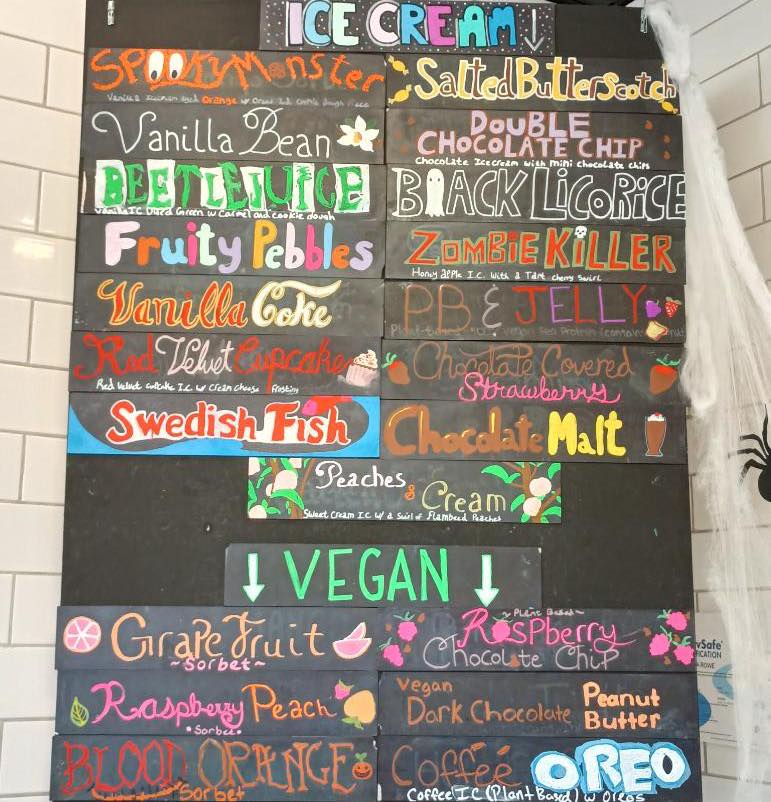 ICE CREAM
SPOOKY Monster
Salted Butterscotch
Vanilla Bean
DOUBLE
CHOCOLATE CHIP
Chocolate Icecream with mini chocolate chips
BEETLEJUICE
Vanilla IC Dyed Green w/ Carmel and cookie dough
BLACK LICORICE
Fruity Pebbles
ZOMBIE KILLER
Honey apple I.C. with a Tart cherry Swirl
Vanilla Coke
PB & JELLY
Red Velvet Cupcake
Red Velvet cupcake I.C w/ Cream Cheese frosting
Chocolate Covered
Strawberry
Swedish Fish
Chocolate Malt
Peaches
& Cream
Sweet Cream I.C w/ a Swirl of Flambeed Peaches
VEGAN
GrapeFruit
~Sorbet~
~Plant Based~
Raspberry
Chocolate Chip
Raspberry Peach
•Sorbet•
Vegan
Dark Chocolate
Peanut
Butter
BLOOD ORANGE
Sorbet
Coffee OREO
Coffee IC (Plant Based) w/ Oreos
ROWE